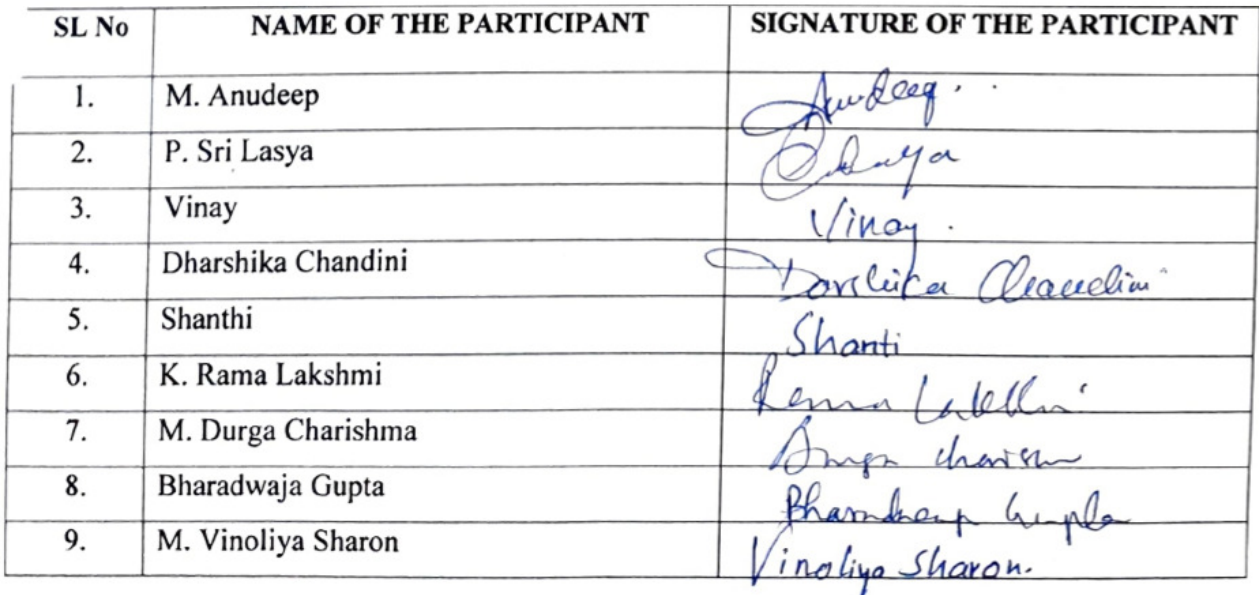 SL No NAME OF THE PARTICIPANT SIGNATURE OF THE PARTICIPANT
1. M. Anudeep Anudeep.
2. P. Sri Lasya
3. Vinay Vinay.
4. Dharshika Chandini Darshika Chandini
5. Shanthi Shanti
6. K. Rama Lakshmi Rama
7. M. Durga Charishma Durga
8. Bharadwaja Gupta Gupta
9. M. Vinoliya Sharon Vinoliya Sharon.